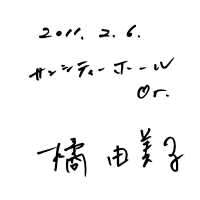 2011. 2. 6.
サンシティーホール
Or.
橘 由美子